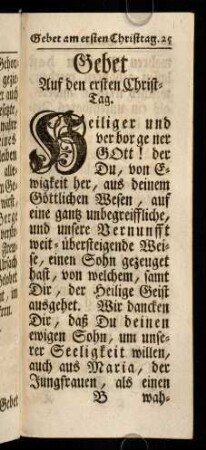 Gebet am ersten Christtag. 25
Gebet
Auf den ersten Christ-
Tag.
Heiliger und
verborgener
GOtt! der
Du, von E-
wigkeit her, aus deinem
Göttlichen Wesen, auf
eine gantz unbegreiffliche,
und unsere Vernunfft
weit-übersteigende Wei-
se, einen Sohn gezeuget
hast, von welchem, samt
Dir, der Heilige Geist
ausgehet. Wir dancken
Dir, daß Du deinen
ewigen Sohn, um unse-
rer Seeligkeit willen,
auch aus Maria, der
Jungfrauen, als einen
B wah-
Gebet